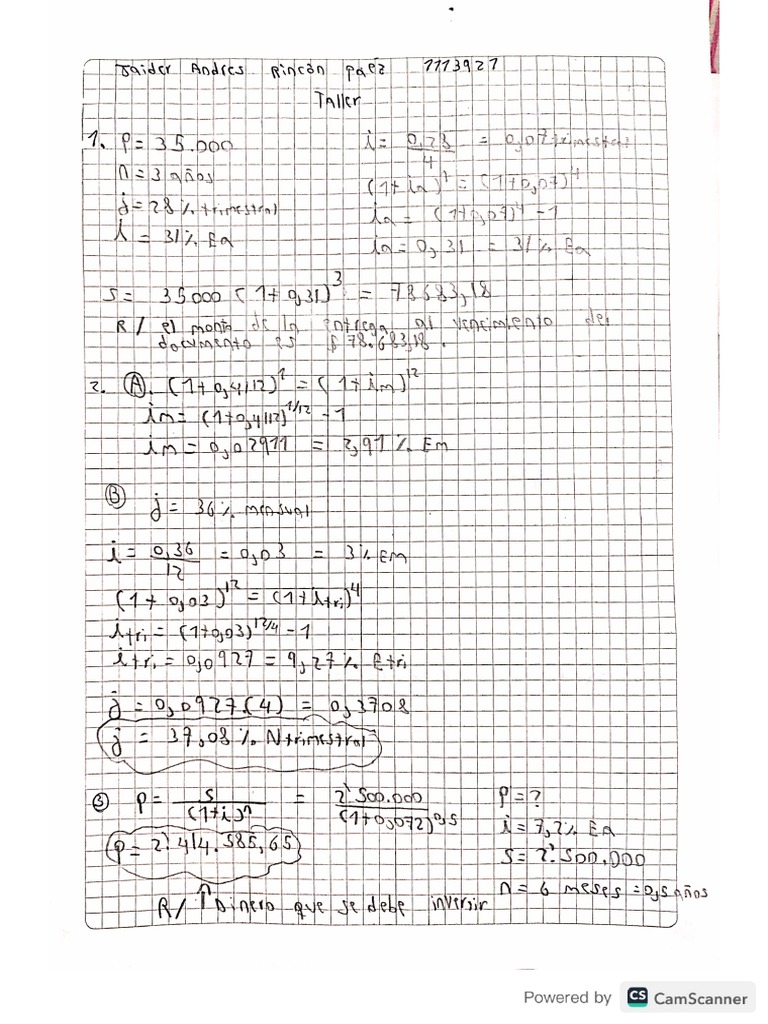 Jaider Andres Rincón paéz 1113921
Taller
1. P= 35.000
n= 3 años
j= 28% trimestral
i = 31% Ea
i= 0,28/4 = 0,07 trimestral
(1+ia)¹ = (1+0,07)⁴
ia = (1+0,07)⁴ -1
ia= 0,31 = 31% Ea
S= 35000 (1+0,31)³ = 78683,18
R/ el monto de la entrega al vencimiento del
documento es $78.683,18.
2. A. (1+0,4112)¹ = (1+im)¹²
im= (1+0,4112)^1/12 -1
im= 0,02911 = 2,91% Em
B j= 36% mensual
i= 0,36/12 = 0,03 = 3% EM
(1+0,03)¹² = (1+itri)⁴
itri= (1+0,03)^12/4 -1
itri= 0,0927 = 9,27% Etri
j= 0,0927.(4) = 0,3708
j= 37,08% Ntrimestral
3 P= S/(1+i)ⁿ = 2'500.000/(1+0,072)^0,5
P= 2'.414.585,65
P= ?
i= 7,2% Ea
S= 2'.500.000
n= 6 meses = 0,5 años
R/ ↑ Dinero que se debe inversir
Powered by CS CamScanner